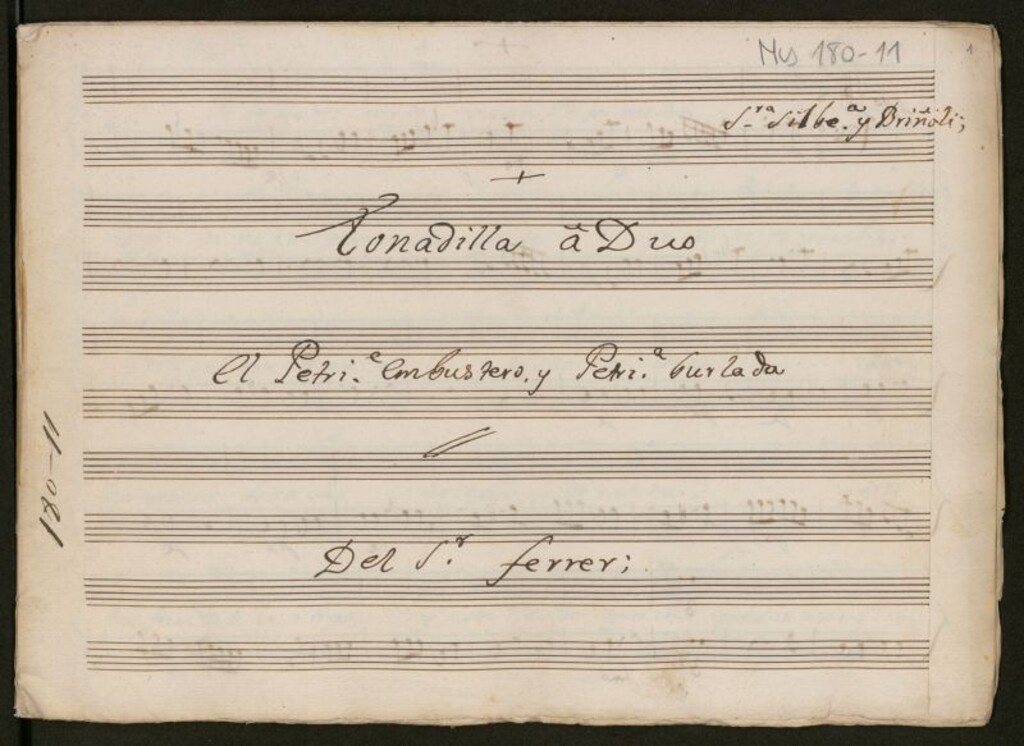 Mus 180-11
1
S.ra Silbe.a y Briñoli;
Tonadilla â Duo
El Petri.e embustero, y Petri.a burlada
Del S.r ferrer;
180-11